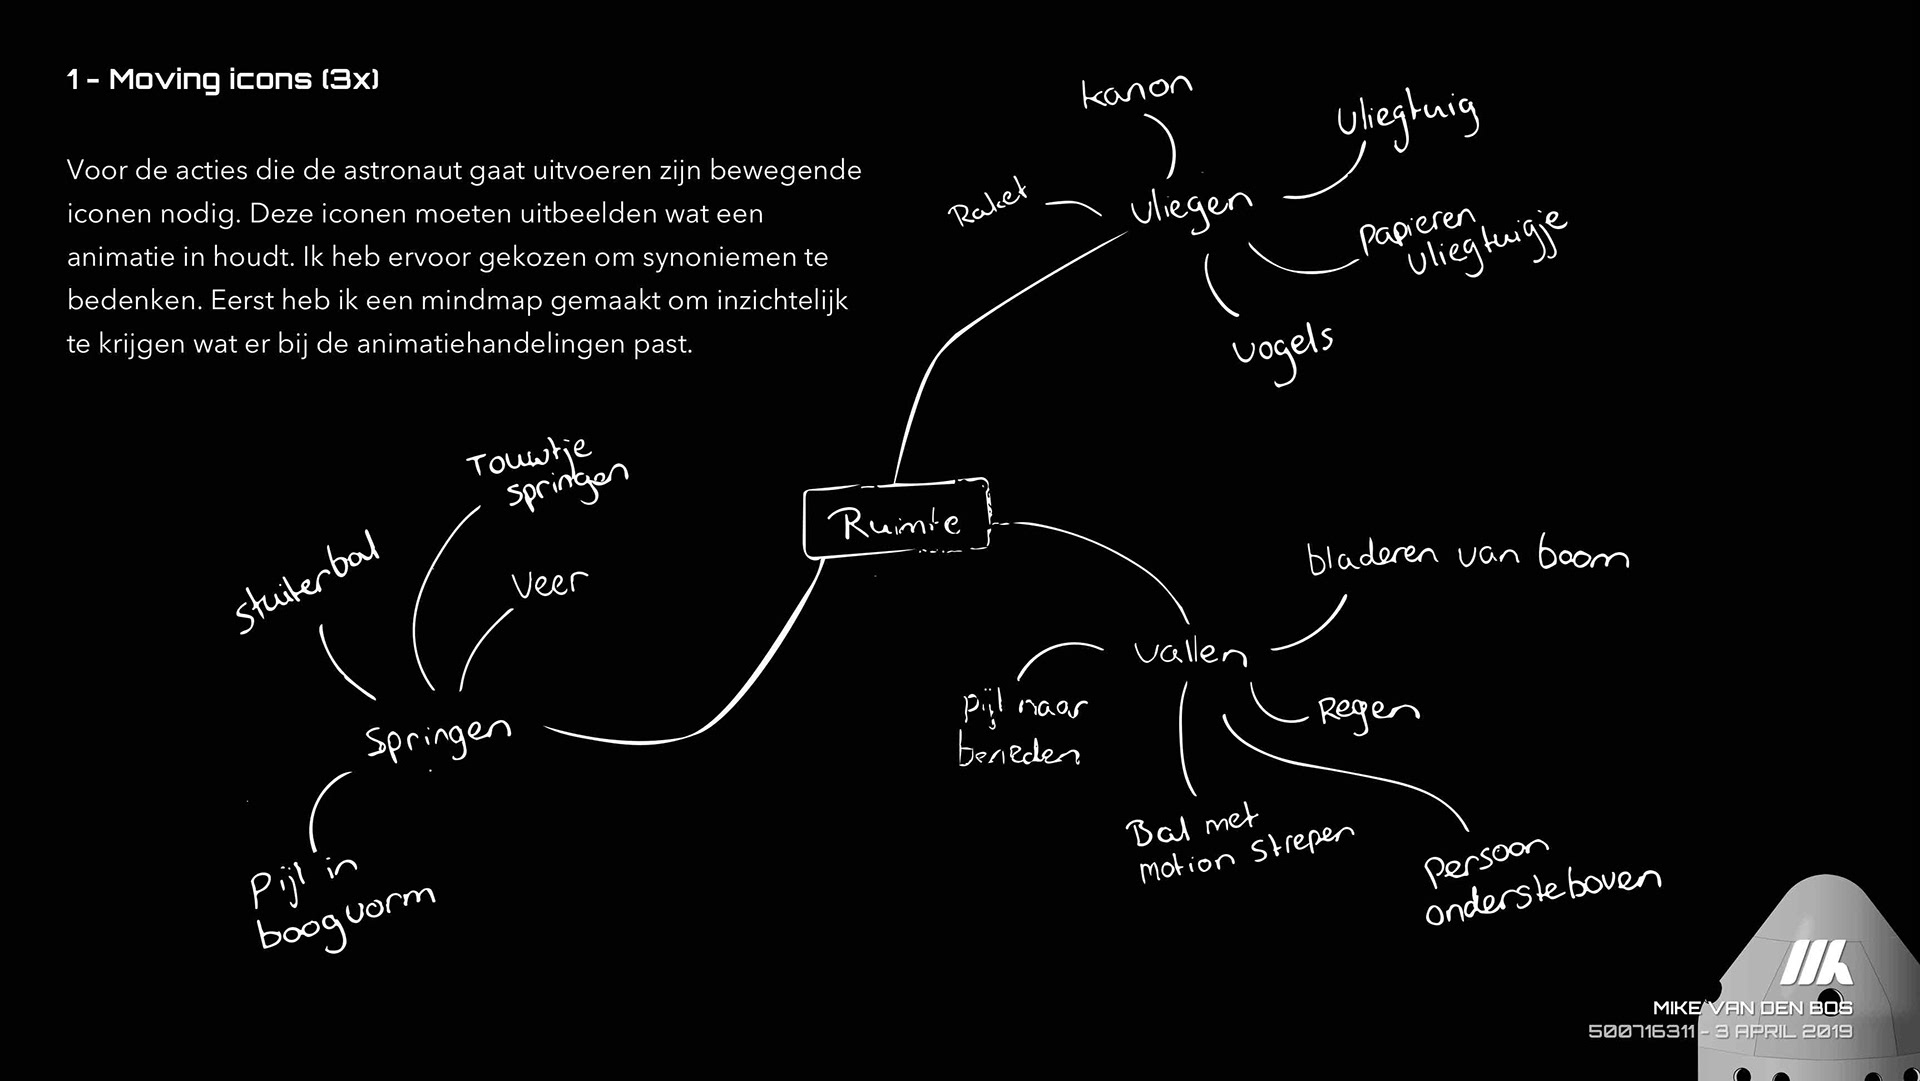 1 - Moving icons (3x)
Voor de acties die de astronaut gaat uitvoeren zijn bewegende
iconen nodig. Deze iconen moeten uitbeelden wat een
animatie in houdt. Ik heb ervoor gekozen om synoniemen te
bedenken. Eerst heb ik een mindmap gemaakt om inzichtelijk
te krijgen wat er bij de animatiehandelingen past.
kanon
Vliegtuig
Raket
Vliegen
Papieren
vliegtuigje
vogels
Touwtje
springen
stuiterbal
Veer
Springen
Pijl in
boogvorm
Ruimte
bladeren van boom
vallen
Pijl naar
beneden
Regen
Bal met
motion strepen
Persoon
ondersteboven
MIKE VAN DEN BOS
500716311 - 3 APRIL 2019